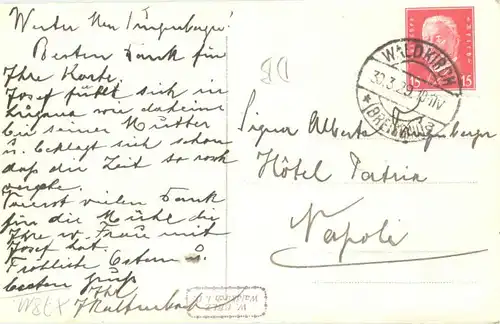 Werter Herr Jungenberger!
Besten Dank für
Ihre Karte.
Josef fühlt sich in
Lugano wie daheim
bei seiner Mutter
u. beklagt sich schon
daß die Zeit so rasch
vergehe.
vielen Dank
für die Mühe die
Ihre w. Frau mit
Josef hat.
Fröhliche Ostern u.
besten Gruß
Ihr
DB
15
WALDKIRCH
30.3.29.
(BREISGAU)
Signor Alberto
Hôtel Patria
Napoli